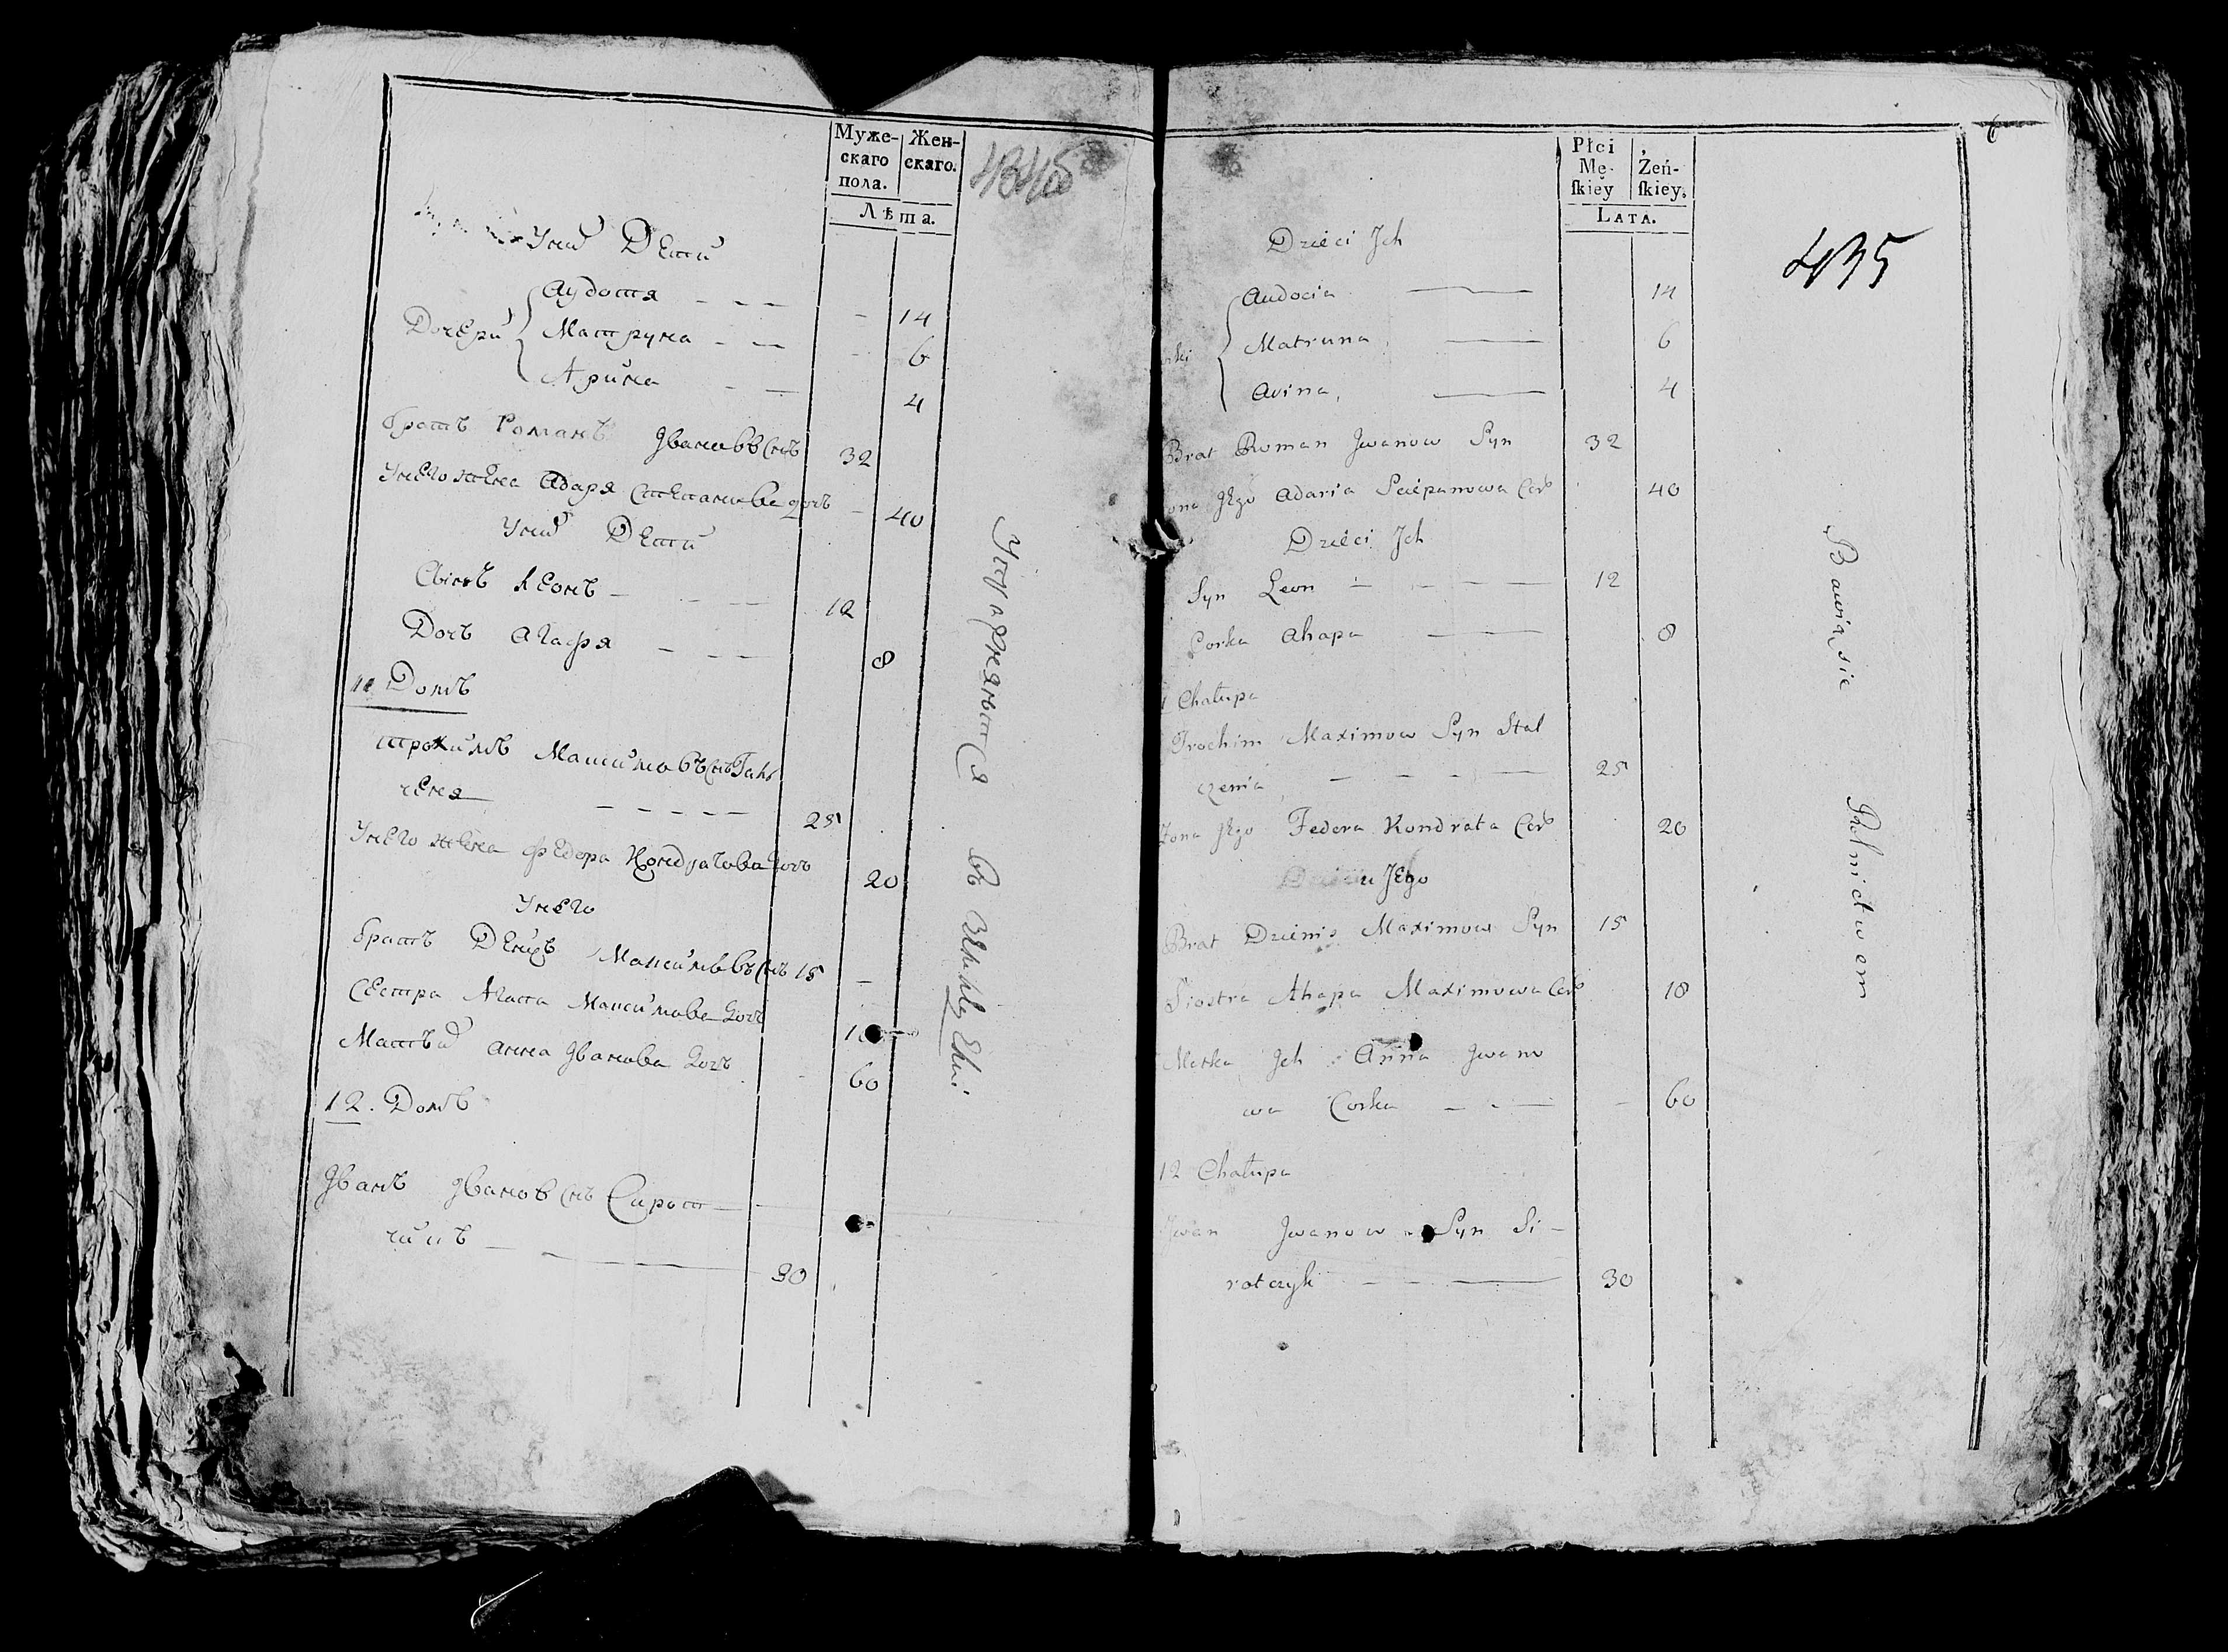 Муже-
скаго
пола.
Жен-
скаго.
Лѣта.
4345
Унихъ Дети
Аудотя — — — 14
Дочери Матруна — — 6
Арина — — 4
братъ Романъ Ивановъ снъ 32
Унего жена Адаря Степанова дочь — 40
Унихъ Дети
Сынъ Леонъ — — — 12
Дочь Агафя — — — 8
11 Домъ
трохимъ Максимовъ снъ Галь
ченя — — — — 25
Унего жена федора Кондратова дочь 20
Унего
братъ Денисъ Максимовъ снъ 15 —
Сестра Агапа Максимова дочь
Мать ихъ анна Иванова дочь 60
12. Домъ
Иванъ Иванов снъ Сирот —
чикъ — — 30
Упражняются въ
Płci
Mę-
ſkiéy
Żeń-
ſkiey.
LATA.
6
435
Dzieci Jch
Audocia — 14
Matruna — 6
orki
Arina, — 4
Brat Roman Jwanow Syn 32
ona Jego Adaria Sciepanowa Cor 40
Dzieci Jch
Syn Leon — — — 12
Corka Ahapa — 8
1 Chałupa
Trochim Maximow Syn Hal
czenia — — — — 25
Żona Jego Fedora Kondrata Cor 20
u Jego
Brat Dzienis Maximow Syn 15
Siostra Ahapa Maximowa Cor 18
Matka Jch Anna Jwano
wa Corka — — — 60
12 Chałupa
Jwan Jwanow Syn Si —
rotczyk — — — 30
Bawią sie Rolnictwem